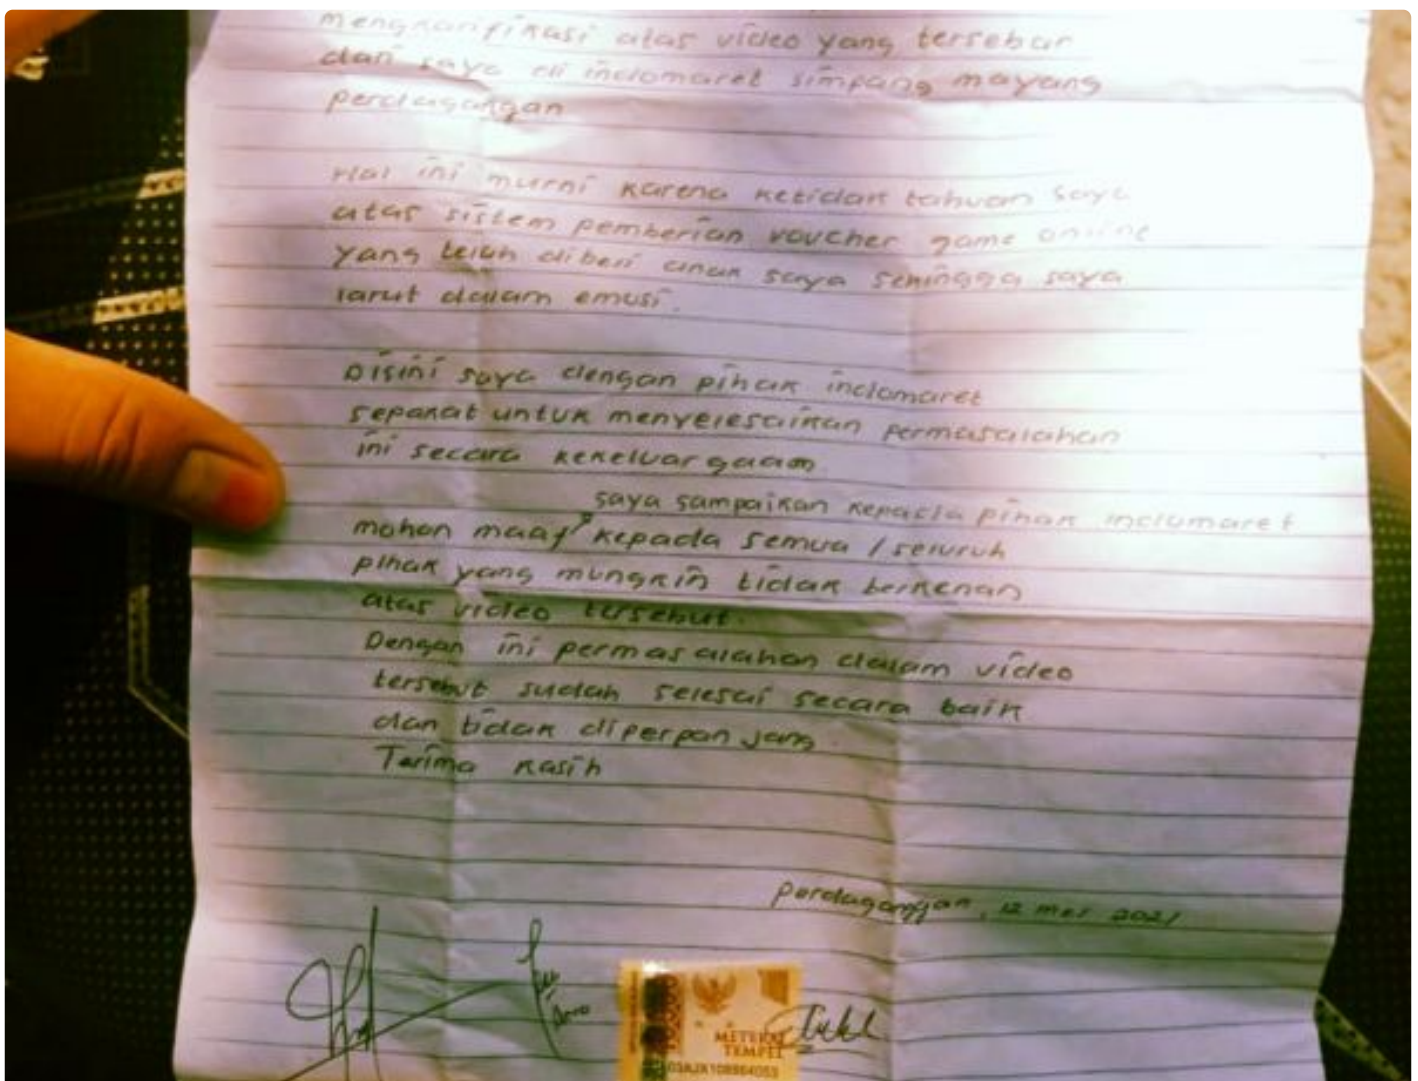 mengkarifikasi atas video yang tersebar
dari saya di indomaret simpang mayang
perdagangan
Hal ini murni karena ketidak tahuan saya
atas sistem pemberian voucher game online
yang telah diberi anak saya sehingga saya
larut dalam emosi.
Disini saya dengan pihak indomaret
sepakat untuk menyelesaikan permasalahan
ini secara kekeluargaan.
saya sampaikan kepada pihak indomaret
mohon maaf kepada semua / seluruh
pihak yang mungkin tidak berkenan
atas video tersebut.
Dengan ini permasalahan dalam video
tersebut sudah selesai secara baik
dan tidak diperpanjang.
Terima kasih
Perdagangan, 12 mei 2021
METERAI
TEMPEL